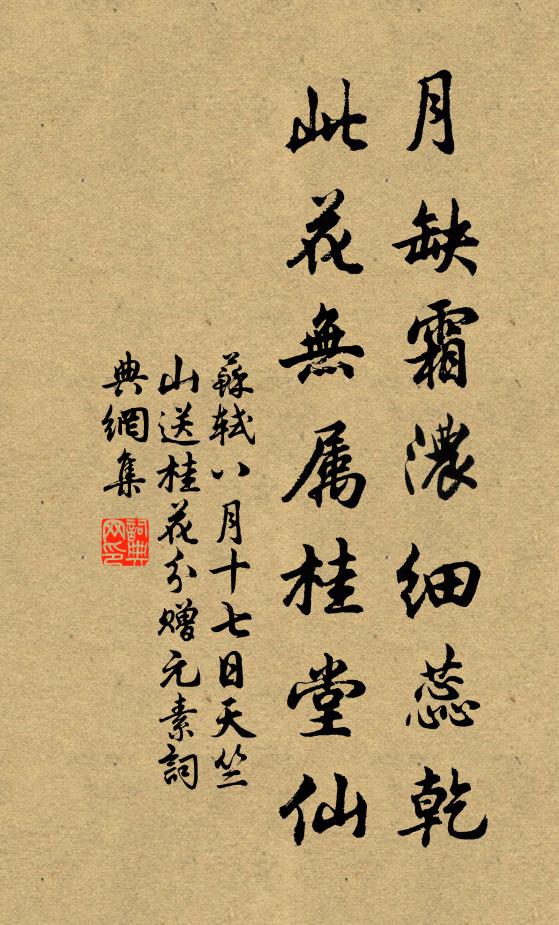 月缺霜濃細蕊乾
此花無属桂堂仙
蘇軾八月十七日天竺
山送桂花分赠元素詞
典網集
詞典网印